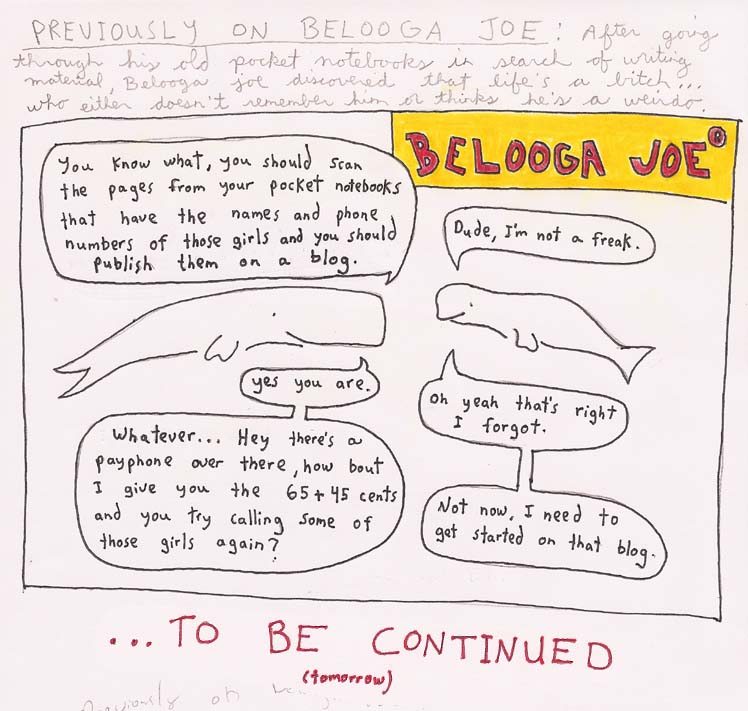 PREVIOUSLY ON BELOOGA JOE: After going
through his old pocket notebooks in search of writing
material, Belooga joe discovered that life's a bitch...
who either doesn't remember him or thinks he's a weirdo.
BELOOGA JOE®
You know what, you should scan
the pages from your pocket notebooks
that have the names and phone
numbers of those girls and you should
publish them on a blog.
Dude, I'm not a freak.
yes you are.
Oh yeah that's right
I forgot.
Whatever... Hey there's a
payphone over there, how bout
I give you the 65+45 cents
and you try calling some of
those girls again?
Not now, I need to
get started on that blog.
...TO BE CONTINUED
(tomorrow)
Previously on